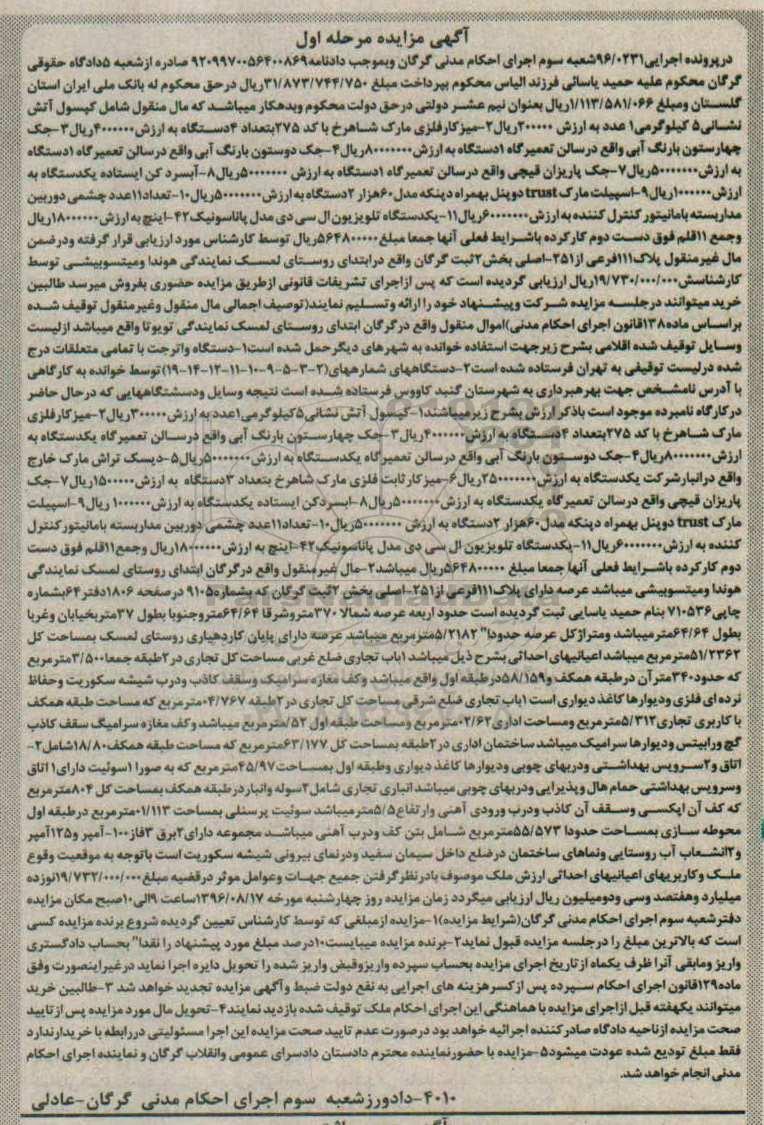 آگهی مزایده مرحله اول
درپرونده اجرایی۹۶/۰۲۳۱شعبه سوم اجرای احکام مدنی گرگان وبموجب دادنامه۹۲۰۹۹۷۰۰۵۶۴۰۰۸۶۹ صادره ازشعبه ۵دادگاه حقوقی
گرگان محکوم علیه حمید یاسائی فرزند الیاس محکوم بپرداخت مبلغ ۳۱/۸۷۳/۷۴۴/۷۵۰ریال درحق محکوم له بانک ملی ایران استان
گلستان ومبلغ ۱/۱۱۳/۵۸۱/۰۶۶ریال بعنوان نیم عشر دولتی درحق دولت محکوم وبدهکار میباشد که مال منقول شامل کپسول آتش
نشانی۵ کیلوگرمی۱ عدد به ارزش ۲۰۰۰۰۰ریال۲-میزکارفلزی مارک شاهرخ با کد ۲۷۵بتعداد ۴دستگاه به ارزش۴۰۰۰۰۰۰ریال۳-جک
چهارستون بارنگ آبی واقع درسالن تعمیرگاه ۱دستگاه به ارزش۸۰۰۰۰۰۰۰ریال۴-جک دوستون بارنگ آبی واقع درسالن تعمیرگاه ۱دستگاه
به ارزش۵۰۰۰۰۰۰۰ریال۷-جک پاریزان قیچی واقع درسالن تعمیرگاه ۱دستگاه به ارزش ۵۰۰۰۰۰۰۰ریال۸-آبسرد کن ایستاده یکدستگاه به
ارزش۱۰۰۰۰۰۰ریال۹-اسپیلت مارک trust دوپنل بهمراه دینکه مدل۶۰هزار ۲دستگاه به ارزش۵۰۰۰۰۰۰۰ریال۱۰-تعداد۱۱عدد چشمی دوربین
مداربسته بامانیتور کنترل کننده به ارزش۶۰۰۰۰۰۰۰ریال۱۱-یکدستگاه تلویزیون ال سی دی مدل پاناسونیک۴۲-اینچ به ارزش۱۸۰۰۰۰۰۰ریال
وجمع ۱۱قلم فوق دست دوم کارکرده باشرایط فعلی آنها جمعا مبلغ۵۶۴۸۰۰۰۰۰ریال توسط کارشناس مورد ارزیابی قرار گرفته ودرضمن
مال غیرمنقول پلاک۱۱۱فرعی از۲۵۱-اصلی بخش۲ثبت گرگان واقع درابتدای روستای لمسک نمایندگی هوندا ومیتسوبیشی توسط
کارشناس۱۹/۷۳۰/۰۰۰/۰۰۰ریال ارزیابی گردیده است که پس ازاجرای تشریفات قانونی ازطریق مزایده حضوری بفروش میرسد طالبین
خرید میتوانند درجلسه مزایده شرکت وپیشنهاد خود را ارائه وتسلیم نمایند(توصیف اجمالی مال منقول وغیرمنقول توقیف شده
براساس ماده۱۳۸قانون اجرای احکام مدنی)اموال منقول واقع درگرگان ابتدای روستای لمسک نمایندگی تویوتا واقع میباشد ازلیست
وسایل توقیف شده اقلامی بشرح زیرجهت استفاده خوانده به شهرهای دیگرحمل شده است۱-دستگاه واترجت با تمامی متعلقات درج
شده درلیست توقیفی به تهران فرستاده شده است۲-دستگاههای شمارههای(۲-۳-۵-۹-۱۰-۱۱-۱۲-۱۴-۱۹)توسط خوانده به کارگاهی
با آدرس نامشخص جهت بهرهبرداری به شهرستان گنبد کاووس فرستاده شده است نتیجه وسایل ودستگاههایی که درحال حاضر
درکارگاه نامبرده موجود است باذکر ارزش بشرح زیرمیباشند۱-کپسول آتش نشانی۵کیلوگرمی۱عدد به ارزش۳۰۰۰۰۰ریال۲-میزکارفلزی
مارک شاهرخ با کد ۲۷۵بتعداد ۴دستگاه به ارزش۴۰۰۰۰۰۰ریال۳-جک چهارستون بارنگ آبی واقع درسالن تعمیرگاه یکدستگاه به
ارزش۸۰۰۰۰۰۰۰ریال۴-جک دوستون بارنگ آبی واقع درسالن تعمیرگاه یکدستگاه به ارزش۵۰۰۰۰۰۰۰ریال۵-دیسک تراش مارک خارج
واقع درانبارشرکت یکدستگاه به ارزش۲۵۰۰۰۰۰۰۰ریال۶-میزکار ثابت فلزی مارک شاهرخ بتعداد ۳دستگاه به ارزش۱۵۰۰۰۰۰ریال۷-جک
پاریزان قیچی واقع درسالن تعمیرگاه یکدستگاه به ارزش۵۰۰۰۰۰۰۰ریال۸-ابسردکن ایستاده یکدستگاه به ارزش۱۰۰۰۰۰۰ ریال۹-اسپیلت
مارک trust دوپنل بهمراه دینکه مدل۶۰هزار ۲دستگاه به ارزش ۵۰۰۰۰۰۰۰ریال۱۰-تعداد۱۱عدد چشمی دوربین مداربسته بامانیتور کنترل
کننده به ارزش۶۰۰۰۰۰۰۰ریال۱۱-یکدستگاه تلویزیون ال سی دی مدل پاناسونیک۴۲-اینچ به ارزش۱۸۰۰۰۰۰۰ریال وجمع۱۱قلم فوق دست
دوم کارکرده باشرایط فعلی آنها جمعا مبلغ ۵۶۴۸۰۰۰۰۰ریال میباشد۲-مال غیرمنقول واقع درگرگان ابتدای روستای لمسک نمایندگی
هوندا ومیتسوبیشی میباشد عرصه دارای پلاک۱۱۱فرعی از۲۵۱-اصلی بخش ۲ثبت گرگان که بشماره۹۱۰۵ درصفحه ۱۸۰۶دفتر۶۴بشماره
چاپی۷۱۰۵۳۶ بنام حمید یاسایی ثبت گردیده است حدود اربعه عرصه شمالا ۳۷۰متروشرقا ۶۴/۶۴متروجنوبا بطول ۳۷متربخیابان وغربا
بطول ۶۴/۶۴مترمیباشد ومتراژکل عرصه حدودا" ۵/۲۱۸۲مترمربع میباشد عرصه دارای پایان کاردهیاری روستای لمسک بمساحت کل
۵۱/۲۳۶۲مترمربع میباشد اعیانیهای احداثی بشرح ذیل میباشد ۱باب تجاری ضلع غربی مساحت کل تجاری در۲طبقه جمعا۳/۵۰۰مترمربع
که حدود۳۴۰مترآن درطبقه همکف و۵۸/۱۵۹درطبقه اول واقع میباشد وکف مغازه سرامیک وسقف کاذب ودرب شیشه سکوریت وحفاظ
نرده ای فلزی ودیوارها کاغذ دیواری است ۱باب تجاری ضلع شرقی مساحت کل تجاری در۲طبقه ۰۴/۷۶۷مترمربع که مساحت طبقه همکف
با کاربری تجاری۵/۳۱۲مترمربع ومساحت اداری۰۲/۶۲مترمربع ومساحت طبقه اول ۵۲/مترمربع میباشد وکف مغازه سرامیگ سقف کاذب
گچ ورابیتس ودیوارها سرامیک میباشد ساختمان اداری در۲طبقه بمساحت کل ۶۳/۱۷۷مترمربع که مساحت طبقه همکف۱۸/۸۰شامل۲-
اتاق و۲سرویس بهداشتی ودربهای چوبی ودیوارها کاغذ دیواری وطبقه اول بمساحت۴۵/۹۷مترمربع که به صورا ۱سوئیت دارای۱ اتاق
وسرویس بهداشتی حمام هال وپذیرایی ودربهای چوبی میباشد انباری تجاری شامل۲سوله وانباردرطبقه همکف بمساحت کل ۸۰۴مترمربع
که کف آن اپکسی وسقف آن کاذب ودرب ورودی آهنی وارتفاع۵/۵مترمیباشد سوئیت پرسنلی بمساحت ۰۱/۱۱۳مترمربع درطبقه اول
محوطه سازی بمساحت حدودا ۵۵/۵۷۳مترمربع شامل بتن کف ودرب آهنی میباشد مجموعه دارای۲برق ۳فاز۱۰۰-آمپر و۱۲۵آمپر
و۲انشعاب آب روستایی ونماهای ساختمان درضلع داخل سیمان سفید ودرنمای بیرونی شیشه سکوریت است باتوجه به موقعیت وقوع
ملک وکاربریهای اعیانیهای احداثی ارزش ملک موصوف بادرنظرگرفتن جمیع جهات وعوامل موثر درقضیه مبلغ۱۹/۷۳۲/۰۰۰/۰۰۰نوزده
میلیارد وهفتصد وسی ودومیلیون ریال ارزیابی میگردد زمان مزایده روز چهارشنبه مورخه ۱۳۹۶/۰۸/۱۷ساعت ۹الی۱۰صبح مکان مزایده
دفترشعبه سوم اجرای احکام مدنی گرگان(شرایط مزایده)۱-مزایده ازمبلغی که توسط کارشناس تعیین گردیده شروع برنده مزایده کسی
است که بالاترین مبلغ را درجلسه مزایده قبول نماید۲-برنده مزایده میبایست۱۰درصد مبلغ مورد پیشنهاد را نقدا" بحساب دادگستری
واریز ومابقی آنرا ظرف یکماه ازتاریخ اجرای مزایده بحساب سپرده واریزوقبض واریز شده را تحویل دایره اجرا نماید درغیراینصورت وفق
ماده۱۲۹قانون اجرای احکام سپرده پس ازکسرهزینه های اجرایی به نفع دولت ضبط وآگهی مزایده تجدید خواهد شد ۳-طالبین خرید
میتوانند یکهفته قبل ازاجرای مزایده با هماهنگی این اجرای احکام ملک توقیف شده بازدید نمایند۴-تحویل مال مورد مزایده پس ازتایید
صحت مزایده ازناحیه دادگاه صادرکننده اجرائیه خواهد بود درصورت عدم تایید صحت مزایده این اجرا مسئولیتی دررابطه با خریدارندارد
فقط مبلغ تودیع شده عودت میشود۵-مزایده با حضورنماینده محترم دادستان دادسرای عمومی وانقلاب گرگان و نماینده اجرای احکام
مدنی انجام خواهد شد.
۴۰۱۰-دادورزشعبه سوم اجرای احکام مدنی گرگان-عادلی